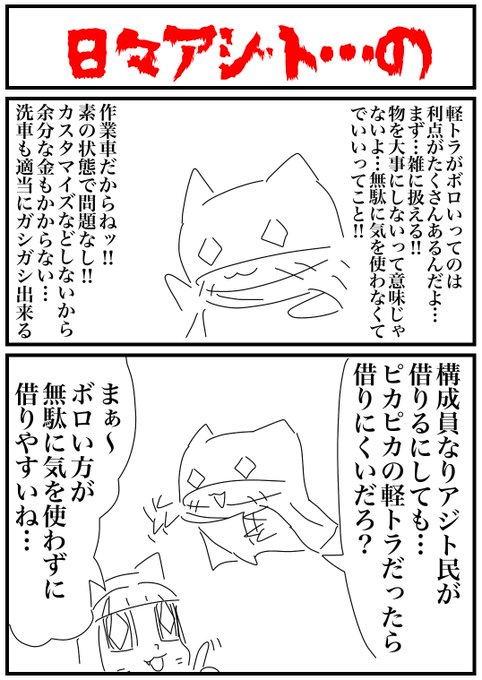 日々アジト…の
軽トラがボロいってのは
利点がたくさんあるんだよ…
まず…雑に扱える!!
物を大事にしないって意味じゃ
ないよ…無駄に気を使わなくて
でいいってこと!!
作業車だからねッ!!
素の状態で問題なし!!
カスタマイズなどしないから
余分な金もかからない…
洗車も適当にガシガシ出来る
構成員なりアジト民が
借りるにしても…
ピカピカの軽トラだったら
借りにくいだろ？
まぁ〜
ボロい方が
無駄に気を使わずに
借りやすいね…